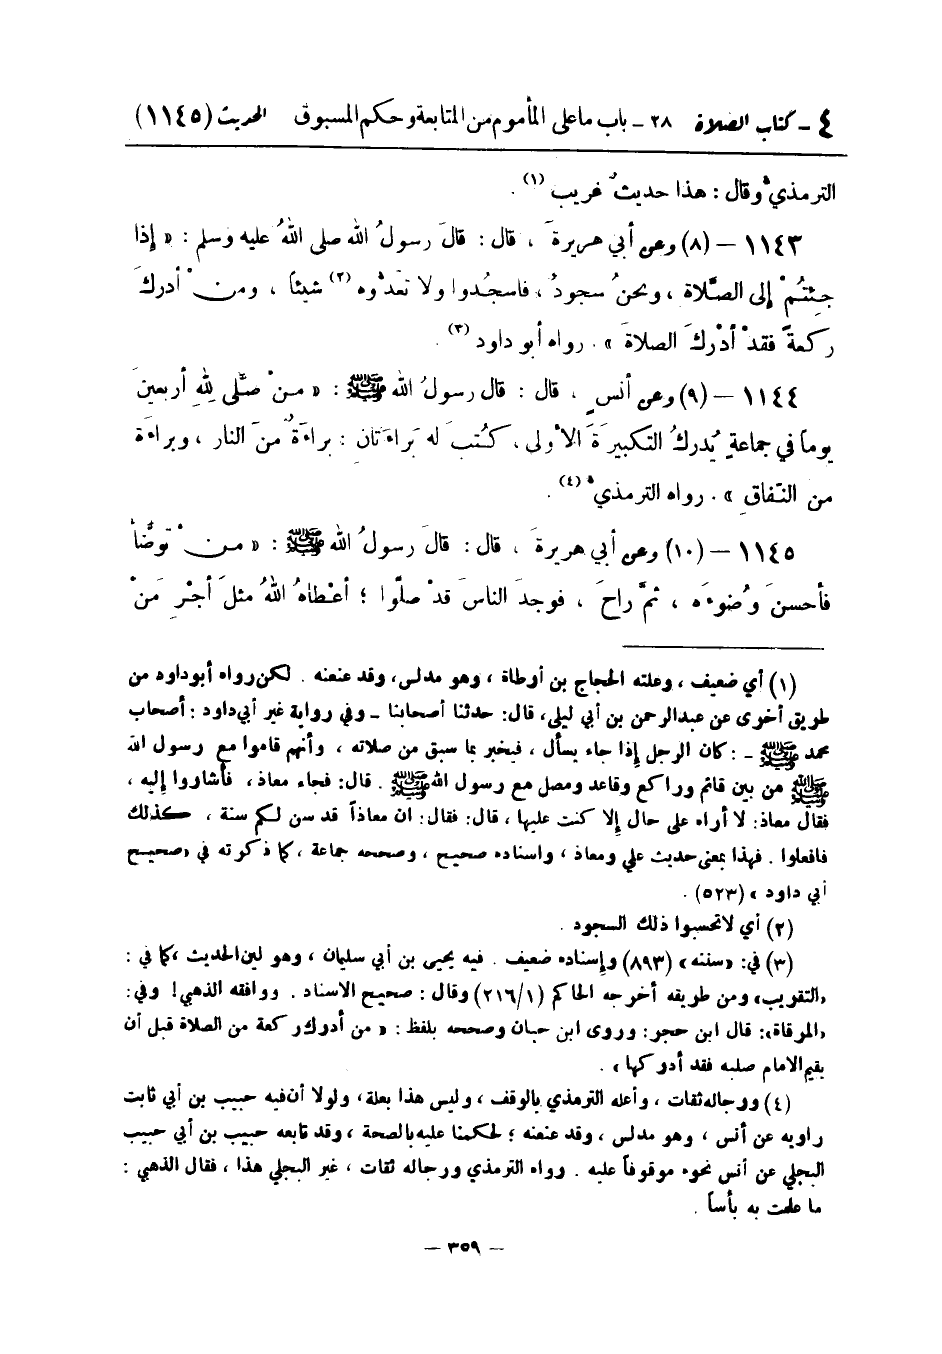 ٤ - كتاب الصلاة ٢٨ - باب ما على المأموم من المتابعة وحكم المسبوق الحديث (١١٤٥)
الترمذيُّ وقال : هذا حديثٌ غريب (١) .
١١٤٣ - (٨) وعن أبي هريرةَ ، قال : قالَ رسولُ الله صلى اللهُ عليه وسلم : « إذا
جِئتُمْ إلى الصَّلاة ، ونحنُ سجودٌ ، فاسجُدوا ولا تعُدُّوه (٢) شيئاً ، ومنْ أدركَ
ركعةً فقدْ أدْركَ الصلاةَ » . رواه أبو داود (٣) .
١١٤٤ - (٩) وعن أنسٍ ، قال : قال رسولُ الله ﷺ : « منْ صلَّى لِلهِ أربعينَ
يوماً في جماعةٍ يُدركُ التكبيرَةَ الأولى ، كُتبَ له بَراءَتان : براءةٌ منَ النار ، وبراءةٌ
من النِّفاقِ » . رواه الترمذيُّ (٤) .
١١٤٥ - (١٠) وعن أبي هريرةَ ، قال : قالَ رسولُ الله ﷺ : « منْ توضَّأَ
فأحسنَ وُضوءَه ، ثمَّ راحَ ، فوجدَ الناسَ قدْ صلّوا ؛ أعْطاهُ اللهُ مثلَ أجْرِ مَنْ
(١) أي ضعيف ، وعلته الحجاج بن أرطاة ، وهو مدلس، وقد عنعنه . لكن رواه أبو داود من
طريق أخرى عن عبدالرحمن بن أبي ليلى، قال: حدثنا أصحابنا - وفي رواية غير أبي داود : أصحاب
محمد ﷺ - : كان الرجل إذا جاء يسأل ، فيخبر بما سبق من صلاته ، وأنهم قاموا مع رسول الله
ﷺ من بين قائم وراكع وقاعد ومصل مع رسول الله ﷺ . قال: فجاء معاذ، فأشاروا إليه ،
فقال معاذ: لا أراه على حال إلا كنت عليها ، قال: فقال: ان معاذاً قد سن لكم سنة ، كذلك
فافعلوا . فهذا بمعنى حديث علي ومعاذ ، واسناده صحيح ، وصححه جماعة ، كما ذكرته في «صحيح
أبي داود » (٥٢٣) .
(٢) أي لا تحسبوا ذلك السجود .
(٣) في: «سننه» (٨٩٣) وإسناده ضعيف . فيه يحيى بن أبي سليمان ، وهو لين الحديث ،كما في :
«التقريب» ومن طريقه أخرجه الحاكم (٢١٦/١) وقال : صحيح الاسناد . ووافقه الذهبي! وفي:
«المرقاة»: قال ابن حجر: وروى ابن حبان وصححه بلفظ : « من أدرك ركعة من الصلاة قبل أن
يقيم الامام صلبه فقد أدركها » .
(٤) ورجاله ثقات ، وأعله الترمذي بالوقف ، وليس هذا بعلة، ولولا أن فيه حبيب بن أبي ثابت
راويه عن أنس ، وهو مدلس ، وقد عنعنه ؛ لحكمنا عليه بالصحة ، وقد تابعه حبيب بن أبي حبيب
البجلي عن أنس نحوه موقوفاً عليه . رواه الترمذي ورجاله ثقات ، غير البجلي هذا ، فقال الذهبي :
ما علمت به بأساً .
- ٣٥٩ -